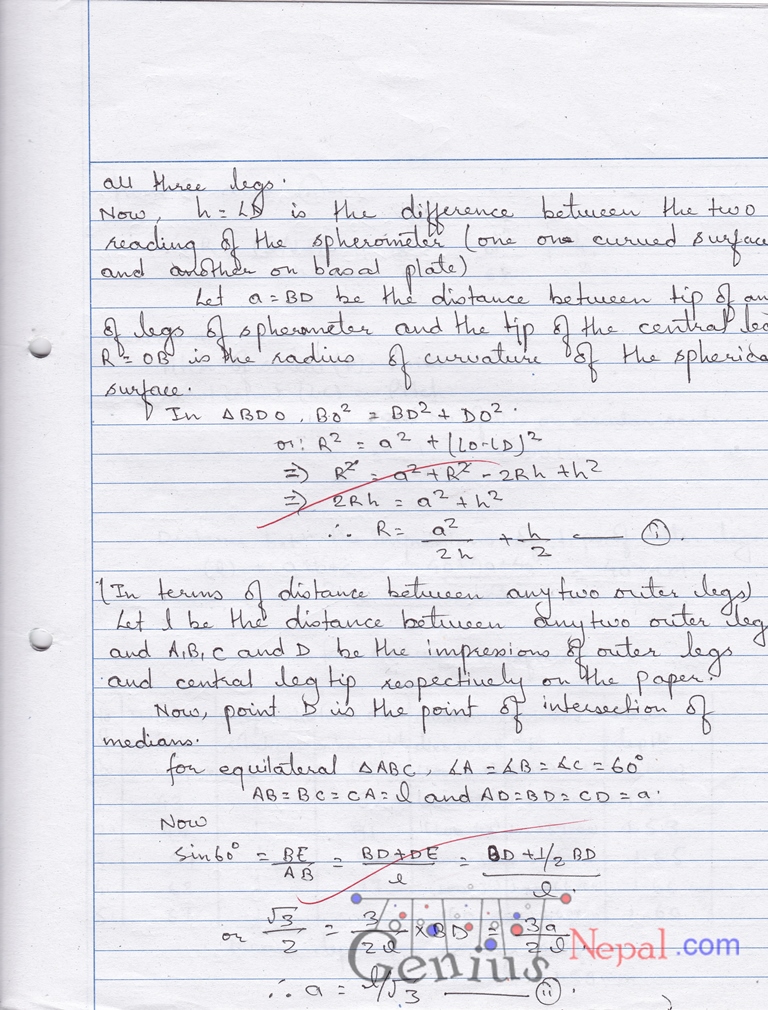 all three legs.
Now, h = LD is the difference between the two
reading of the spherometer (one one curved surface
and another on basal plate)
Let a = BD be the distance between tip of an
of legs of spherometer and the tip of the central leg
R = OB is the radius of curvature of the spherica
surface.
In ΔBDO, BO² = BD² + DO².
or, R² = a² + (LO-LD)²
=> R² = a² + R² - 2Rh + h²
=> 2Rh = a² + h²
∴ R = a²/2h + h/2 —— (i).
(In terms of distance between any two outer legs)
Let l be the distance between any two outer leg
and A, B, C and D be the impressions of outer legs
and central leg tip respectively on the paper.
Now, point D is the point of intersection of
medians.
for equilateral ΔABC, ∠A = ∠B = ∠C = 60°
AB = BC = CA = l and AD = BD = CD = a.
Now
Sin60° = BE/AB = (BD + DE)/l = (BD + 1/2 BD)/l
or √3/2 = 3/2l × BD = 3a/2l
∴ a = l/√3 —— (ii).
Genius Nepal.com